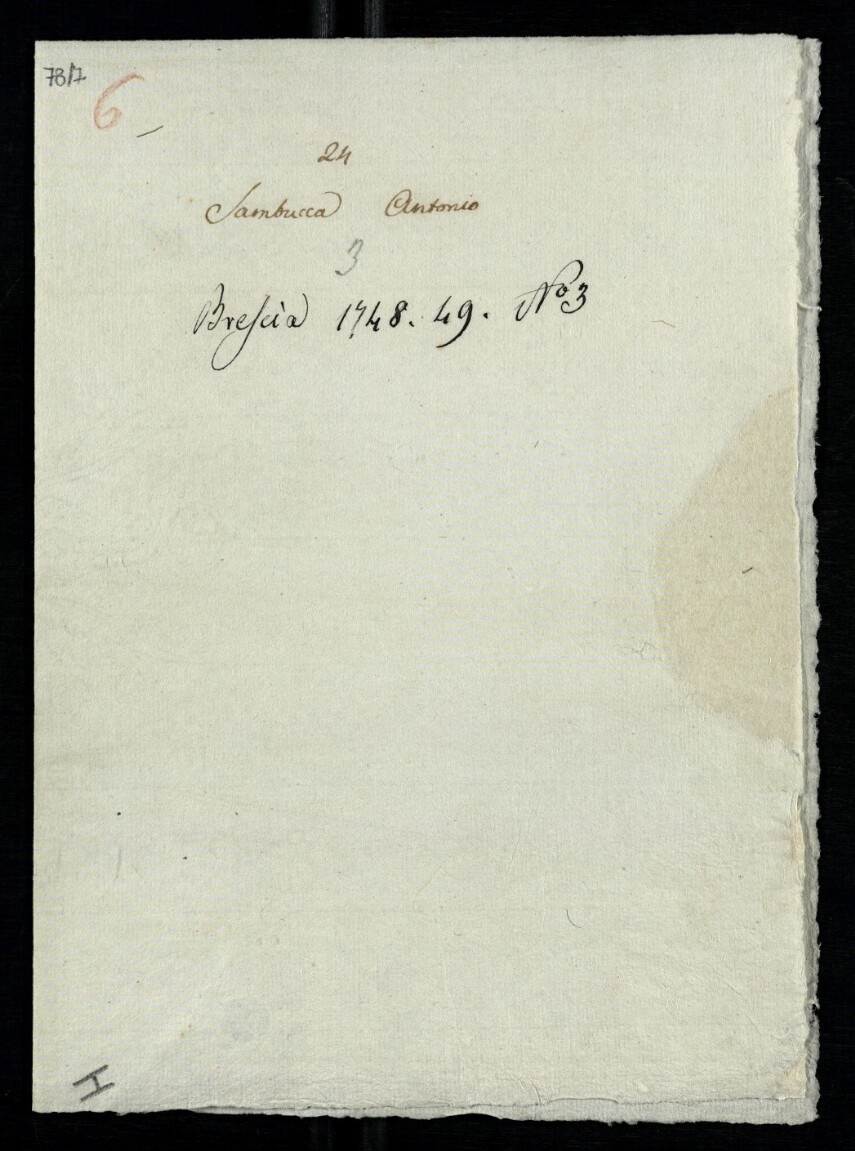 7817
6
24
Sambucca Antonio
3
Brescia 1748. 49. No 3
H